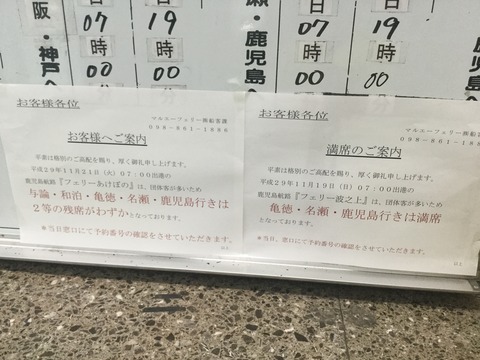 阪・神戸へ
日
07
時
00
日
19
時
00
瀬・鹿児島へ
日
07
時
00
日
19
時
00
鹿児島
お客様各位
マルエーフェリー㈱船客課
098-861-1886
お客様へご案内
平素は格別のご高配を賜り、厚く御礼申し上げます。
平成29年11月21日(火)07:00出港の
鹿児島航路『フェリーあけぼの』は、団体客が多いため
与論・和泊・亀徳・名瀬・鹿児島行きは
2等の残席がわずかとなっております。
*当日窓口にて予約番号の確認をさせていただきます。
以上
お客様各位
マルエーフェリー㈱船客課
098-861-188
満席のご案内
平素は格別のご高配を賜り、厚く御礼申し上げます。
平成29年11月19日(日)07:00出港の
鹿児島航路『フェリー波之上』は、団体客が多いため
亀徳・名瀬・鹿児島行きは満席
となっております。
*当日、窓口にて予約番号の確認をさせていただきます。
以上